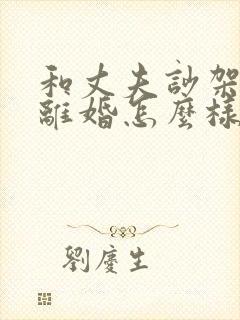 和丈夫訬架
離婚怎麼樣
劉慶生